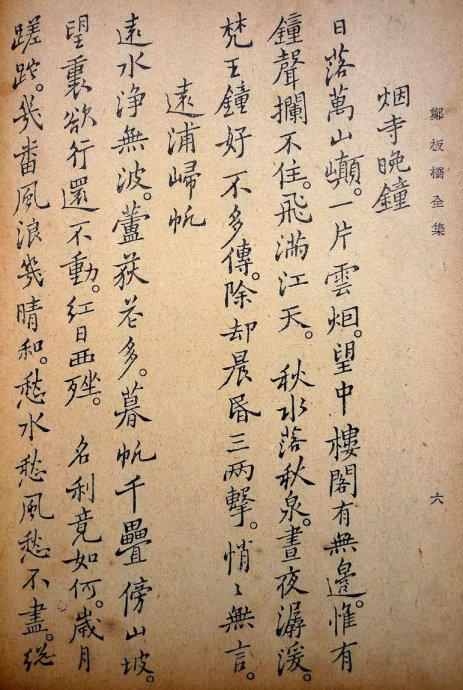 鄭板橋全集
烟寺晚鐘
日落萬山巔。一片雲烟。望中樓閣有無邊。惟有
鐘聲攔不住。飛滿江天。 秋水落秋泉。晝夜潺湲。
梵王鐘好不多傳。除却晨昏三兩擊。悄〻無言。
遠浦歸帆
遠水净無波。蘆荻花多。暮帆千疊傍山坡。
望裏欲行還不動。紅日西矬。 名利竟如何。歲月
蹉跎。幾番風浪幾晴和。愁水愁風愁不盡。總
六